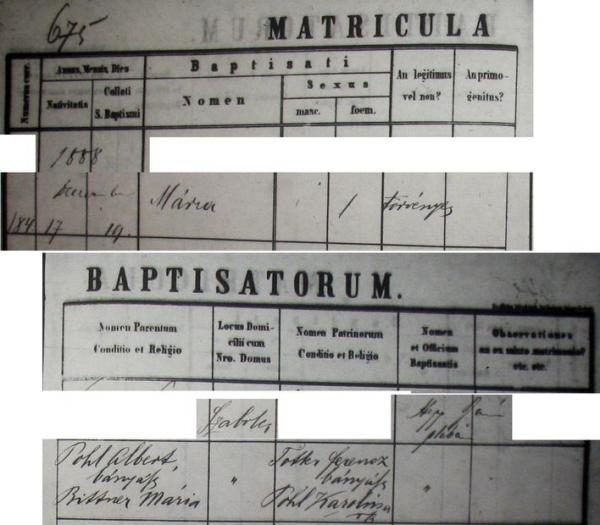 675
MATRICULA
Numerus curr.
Annus, Mensis, Dies
Nativitatis
Collati
S. Baptismi
Baptisati
Nomen
Sexus
masc.
foem.
An legitimus
vel non?
An primo-
genitus?
1888
december
184 17 19. Mária 1 törvényes
BAPTISATORUM.
Nomen Parentum
Conditio et Religio
Locus Domi-
cilii cum
Nro. Domus
Nomen Patrinorum
Conditio et Religio
Nomen
et Officium
Baptisantis
Observationes
an ex mixto matrimonio?
etc. etc.
Szabolcs
plébá
Pohl Albert,
bányász
Bittner Mária
"
Ferencz
bányász
Pohl Karolina
"